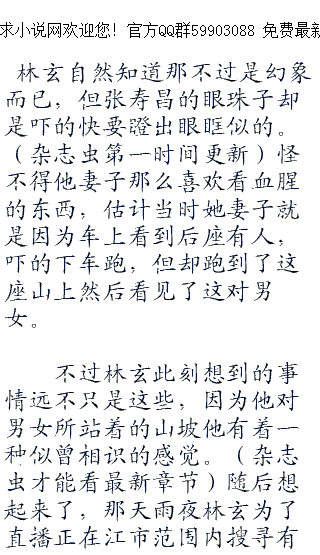 求小说网欢迎您！官方QQ群59903088 免费最新
林玄自然知道那不过是幻象
而已，但张寿昌的眼珠子却
是吓的快要蹬出眼眶似的。
（杂志虫第一时间更新）怪
不得他妻子那么喜欢看血腥
的东西，估计当时她妻子就
是因为车上看到后座有人，
吓的下车跑，但却跑到了这
座山上然后看见了这对男
女。
不过林玄此刻想到的事
情远不只是这些，因为他对
男女所站着的山坡他有着一
种似曾相识的感觉。（杂志
虫才能看最新章节）随后想
起来了，那天雨夜林玄为了
直播正在江市范围内搜寻有